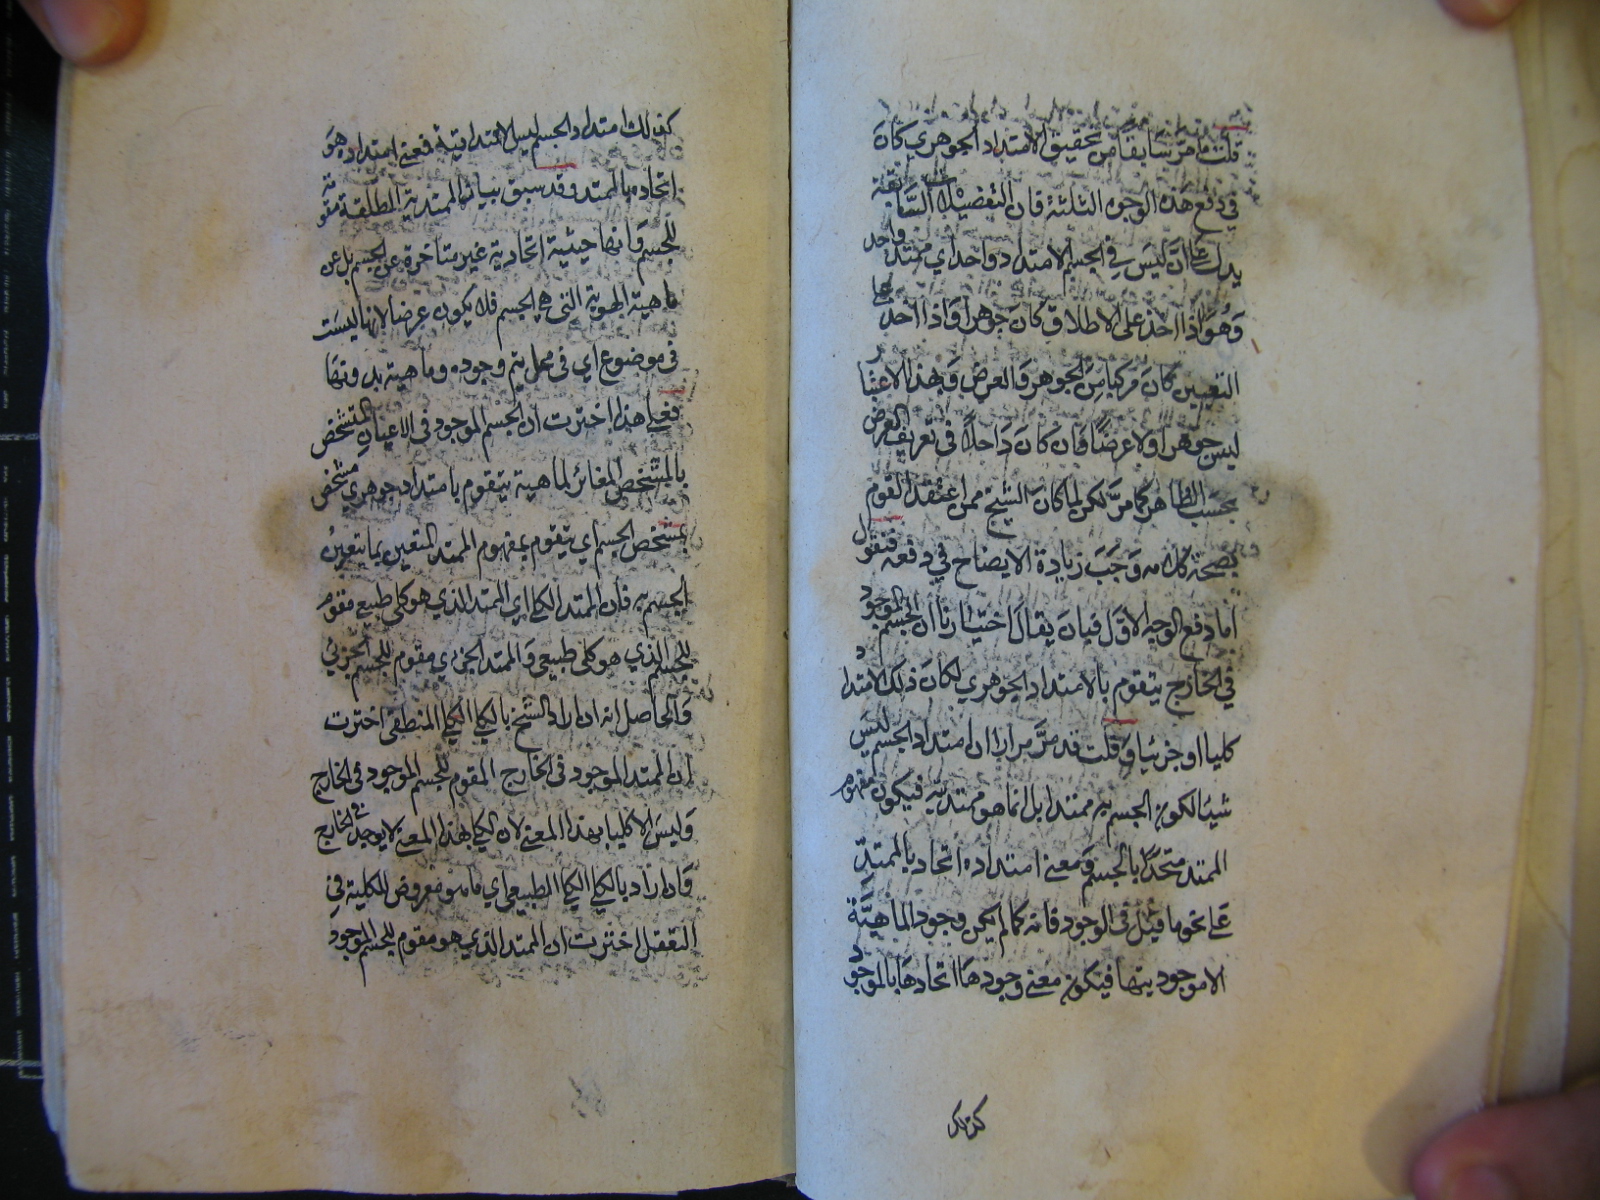 قلت ما مر سابقا من تحقيق الامتداد الجوهري كان
في دفع هذه الوجوه الثلثة فان التفصيلات السابقة
يدل على ان ليس في الجسم الامتداد واحد اي ممتد واحد
وهو اذا اخذ على الاطلاق كان جوهرا واذا اخذ على
التعيين كان مركبا من الجوهر والعرض وبهذا الاعتبار
ليس جوهرا ولا عرضا فان كان داخلا في تعريف العرض
بحسب الظاهر كما مر لكن لما كان الشيخ ممن اعتقد القوم
بصحة كلامه وجب زيادة الايضاح في دفعه فنقول
اما دفع الوجه الاول فبان يقال اختيارنا ان الجسم الموجود
في الخارج يتقوم بالامتداد الجوهري لكان ذلك الامتداد
كليا او جزئيا قلت قد مر مرارا ان امتداد الجسم ليس
شيئا لكون الجسم به ممتدا بل انما هو ممتديته فيكون مفهوم
الممتد متحدا بالجسم ومعنى امتداده اتحاده بالممتد
على نحو ما قيل في الوجود فانه كما لم يكن وجود الماهية
الا موجوديتها فيكون معنى وجودها اتحادها بالموجود
كذلك
كذلك امتداد الجسم ليس الا ممتديته فمعنى امتداده هو
اتحاده بالممتد وقد سبق بيان ان الممتدية المطلقة مقومة
للجسم وانها حيثية اتحادية غير متاخرة عن الجسم بل عن
ماهية الهوية التي هي الجسم فلا يكون عرضا لانها ليست
في موضوع اي في محل يتم وجوده وماهيته بدونها
فعلى هذا اخترت ان الجسم الموجود في الاعيان المتشخص
بالمشخص المغائر لماهيته يتقوم بامتداد جوهري مشخص
بمشخص الجسم اي يتقوم بمفهوم الممتد المتعين بما يتعين
الجسم به فان الممتد الكلي اي الممتد الذي هو كلي طبيعي مقوم
للجسم الذي هو كلي طبيعي والممتد الجزئي مقوم للجسم الجزئي
والحاصل انه ان اراد الشيخ بالكلي الكلي المنطقي اخترت
ان الممتد الموجود في الخارج المقوم للجسم الموجود في الخارج
وليس الا كليا بهذا المعنى لان الكلي بهذا المعنى لا يوجد في الخارج
وان اراد بالكلي الكلي الطبيعي اي ما هو معروض للكلية في
التعقل اخترت ان الممتد الذي هو مقوم للجسم الموجود